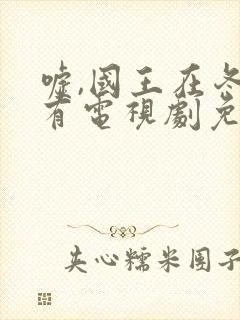 嘘,國王在冬
有電視劇免
夹心糯米团子